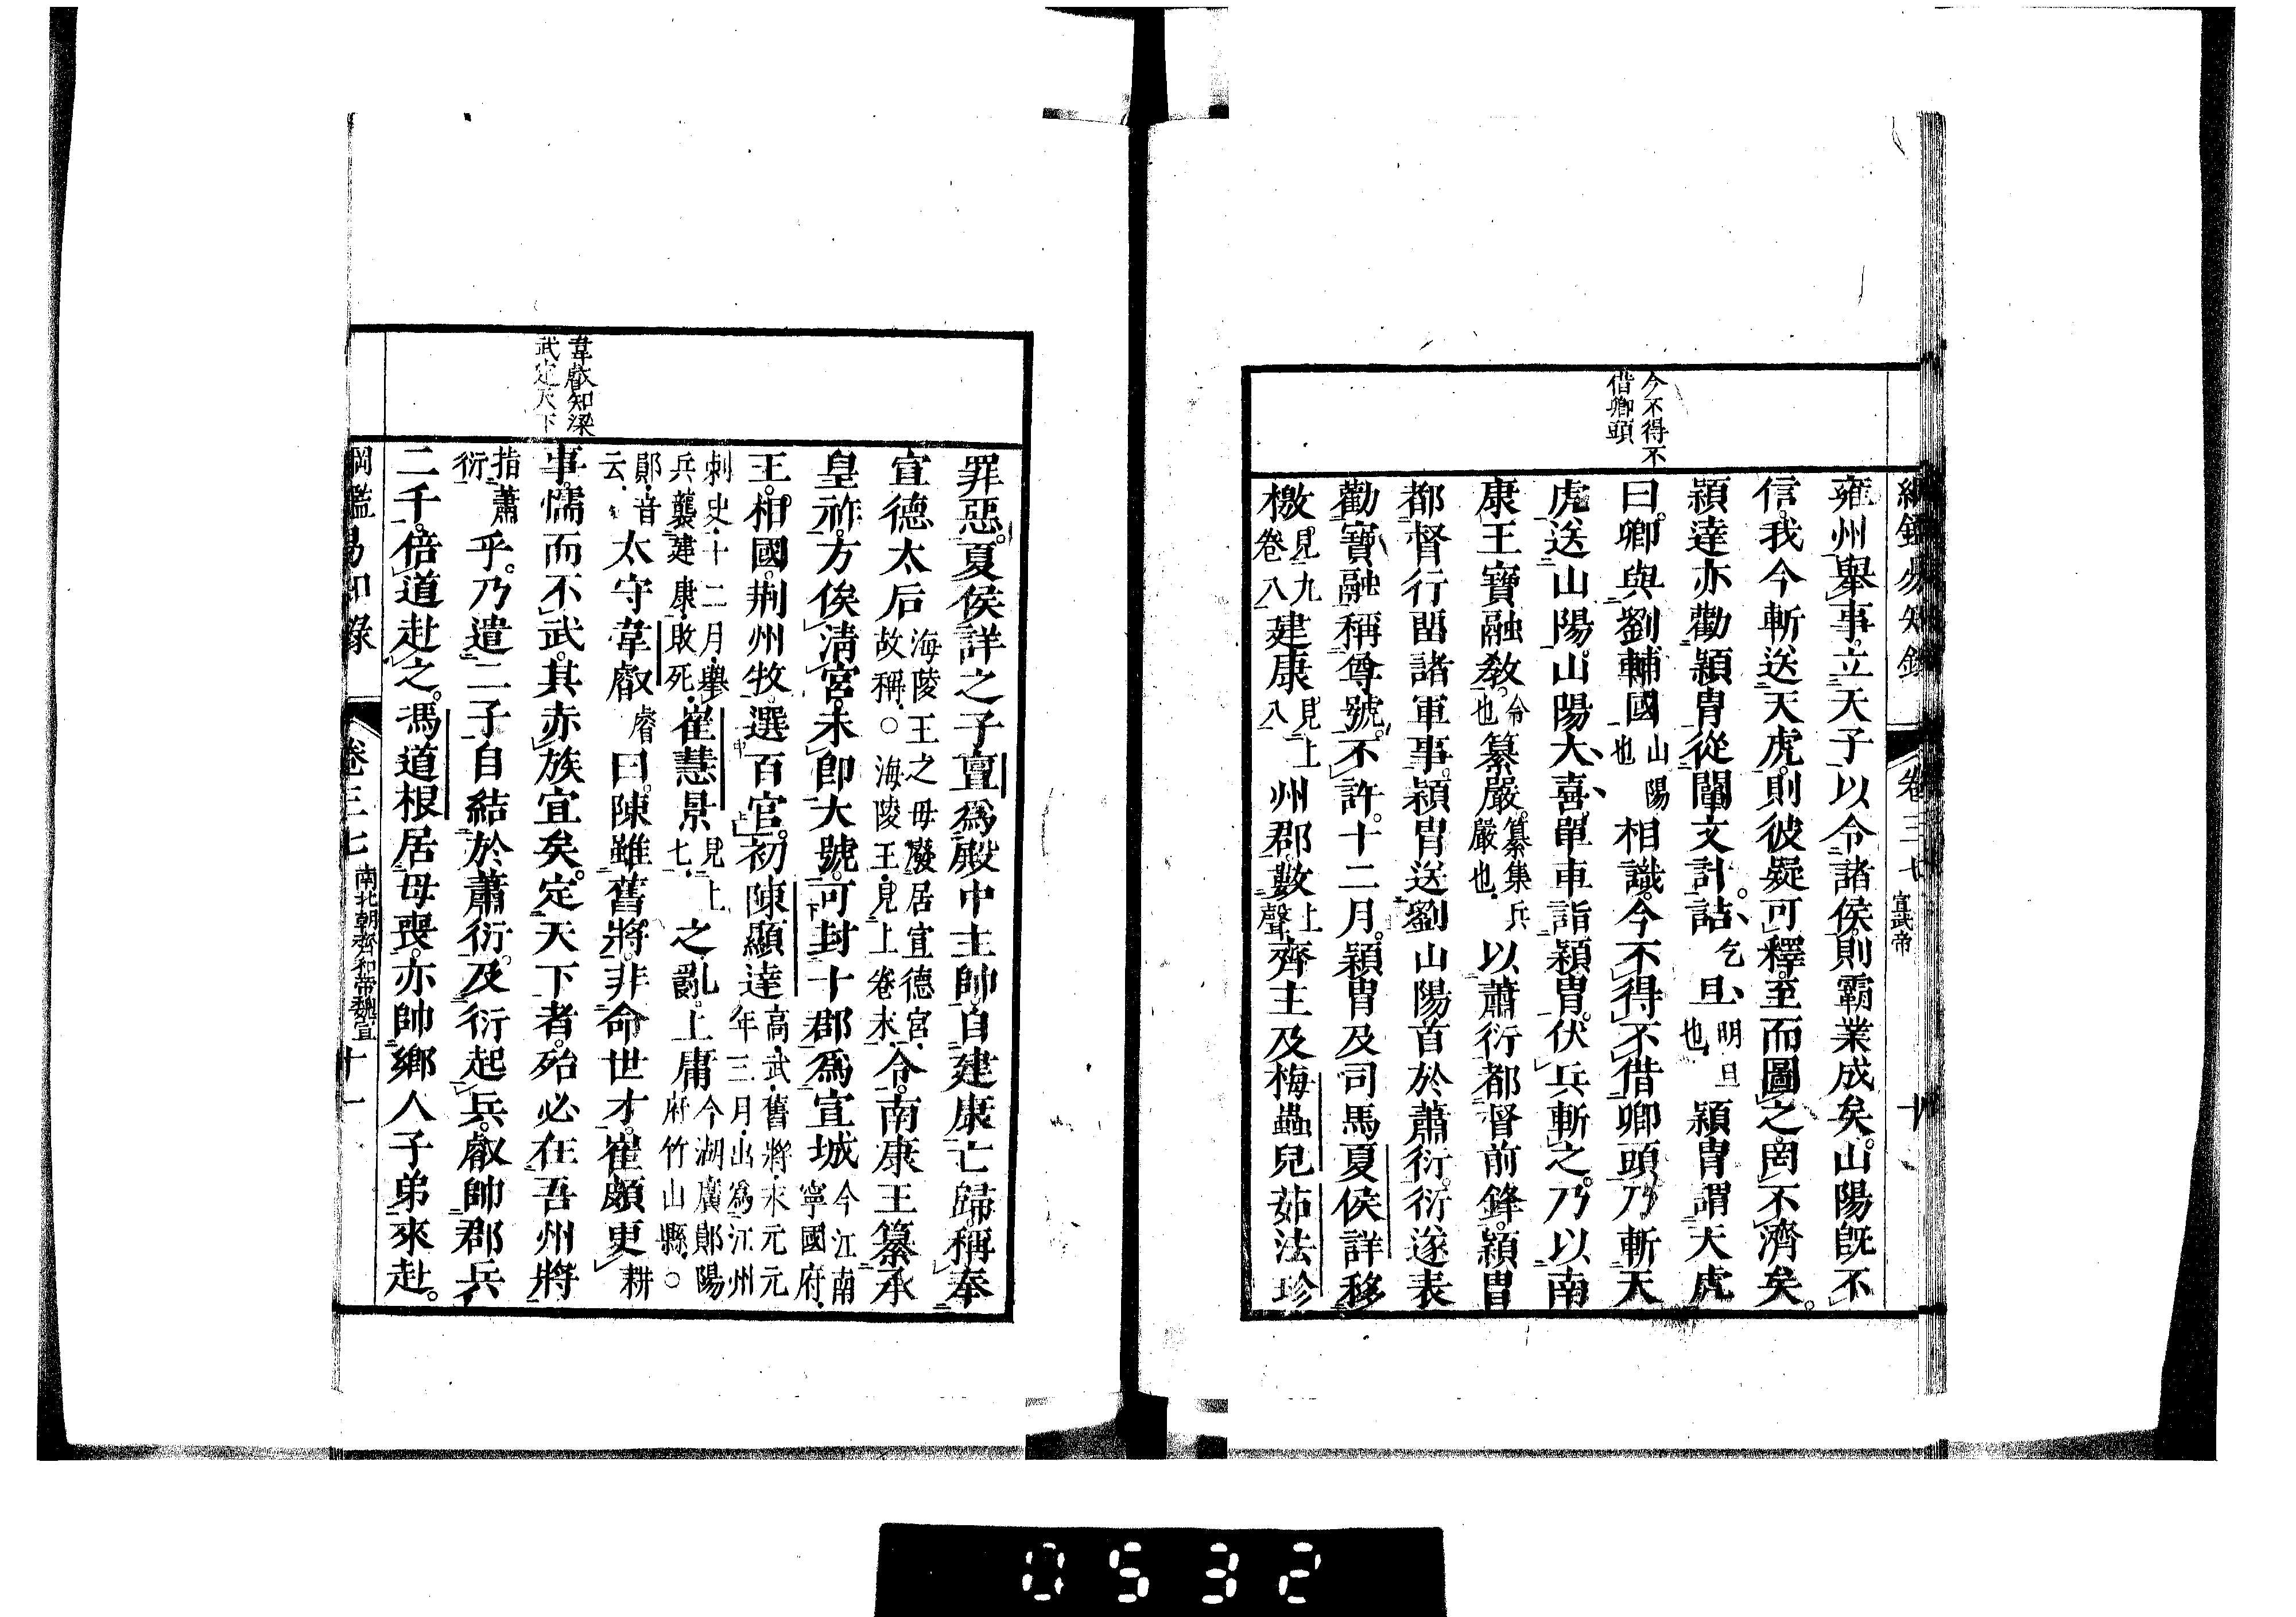 綱鑑易知錄 卷三七 宣武帝 十
今不得不
借卿頭
雍州舉事立天子以令諸侯則霸業成矣山陽旣不
信我今斬送天虎則彼疑可釋至而圖之罔不濟矣
穎達亦勸穎胄從闡文計詰乞旦明旦也穎胄謂天虎
曰卿與劉輔國山陽也相識今不得不借卿頭乃斬天
虎送山陽山陽大喜單車詣穎胄伏兵斬之乃以南
康王寶融敎令也纂嚴纂集兵嚴也以蕭衍都督前鋒穎胄
都督行留諸軍事穎胄送劉山陽首於蕭衍衍遂表
勸寶融稱尊號不許十二月穎胄及司馬夏侯詳移
檄見九卷八建康見上八州郡數上聲齊主及梅蟲兒茹法珍
罪惡夏侯詳之子亶爲殿中主帥自建康亡歸稱奉
宣德太后海陵王之母廢居宣德宮故稱○海陵王見上卷末令南康王纂承
皇祚方俟淸宮未卽大號可封十郡爲宣城今江南寧國府
王相國荆州牧選百官初陳顯達高武舊將永元元年三月出爲江州
刺史十二月舉兵襲建康敗死崔慧景見上七之亂上庸今湖廣鄖陽府竹山縣○
鄖音云太守韋叡睿曰陳雖舊將非命世才崔頗更耕
事懦而不武其赤族宜矣定天下者殆必在吾州將
指蕭衍乎乃遣二子自結於蕭衍及衍起兵叡帥郡兵
二千倍道赴之馮道根居母喪亦帥鄉人子弟來赴
韋叡知梁
武定天下
綱鑑易知錄 卷三七 南北朝齊和帝魏宣 十一
0532